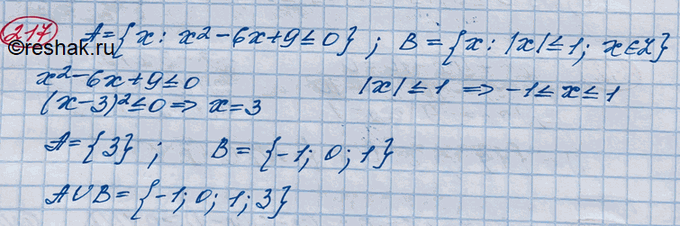 217 A={x: x²-6x+9≤0} ; B={x: |x|≤1; x∈Z}
©reshak.ru
x²-6x+9≤0 |x|≤1 ⇒ -1≤x≤1
(x-3)²≤0 ⇒ x=3
A={3} ; B={-1; 0; 1}
A∪B={-1; 0; 1; 3}